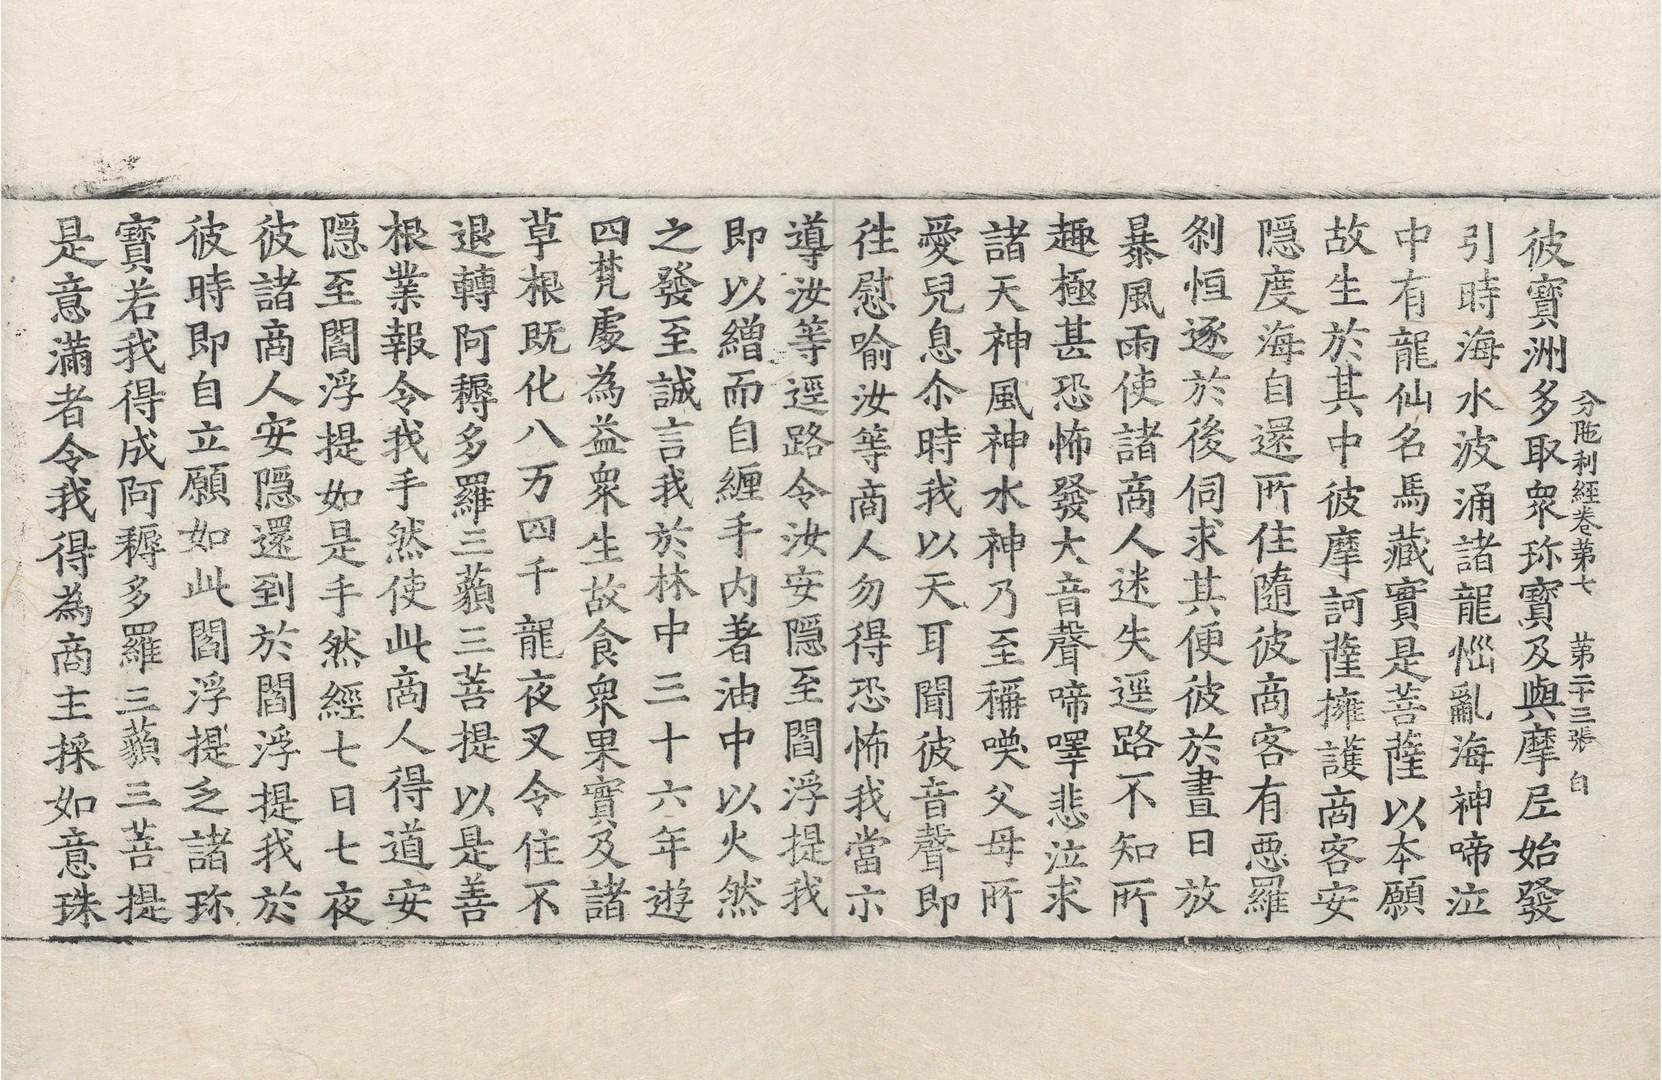 分陁利經卷第七　第二十三張　白
彼寶洲多取衆珎寶及與摩尼始發
引時海水波涌諸龍惱亂海神啼泣
中有龍仙名馬藏實是菩薩以本願
故生於其中彼摩訶薩擁護商客安
隱度海自還所住隨彼商客有惡羅
刹恒逐於後伺求其便彼於晝日放
暴風雨使諸商人迷失逕路不知所
趣極甚恐怖發大音聲啼嘷悲泣求
諸天神風神水神乃至稱喚父母所
愛兒息尒時我以天耳聞彼音聲即
徃慰喻汝等商人勿得恐怖我當示
導汝等逕路令汝安隱至閻浮提我
即以繒而自纏手內著油中以火然
之發至誠言我於林中三十六年遊
四梵處為益衆生故食衆果實及諸
草根既化八万四千龍夜叉令住不
退轉阿耨多羅三藐三菩提以是善
根業報令我手然使此商人得道安
隱至閻浮提如是手然經七日七夜
彼諸商人安隱還到於閻浮提我於
彼時即自立願如此閻浮提乏諸珎
寶若我得成阿耨多羅三藐三菩提
是意滿者令我得為商主採如意珠